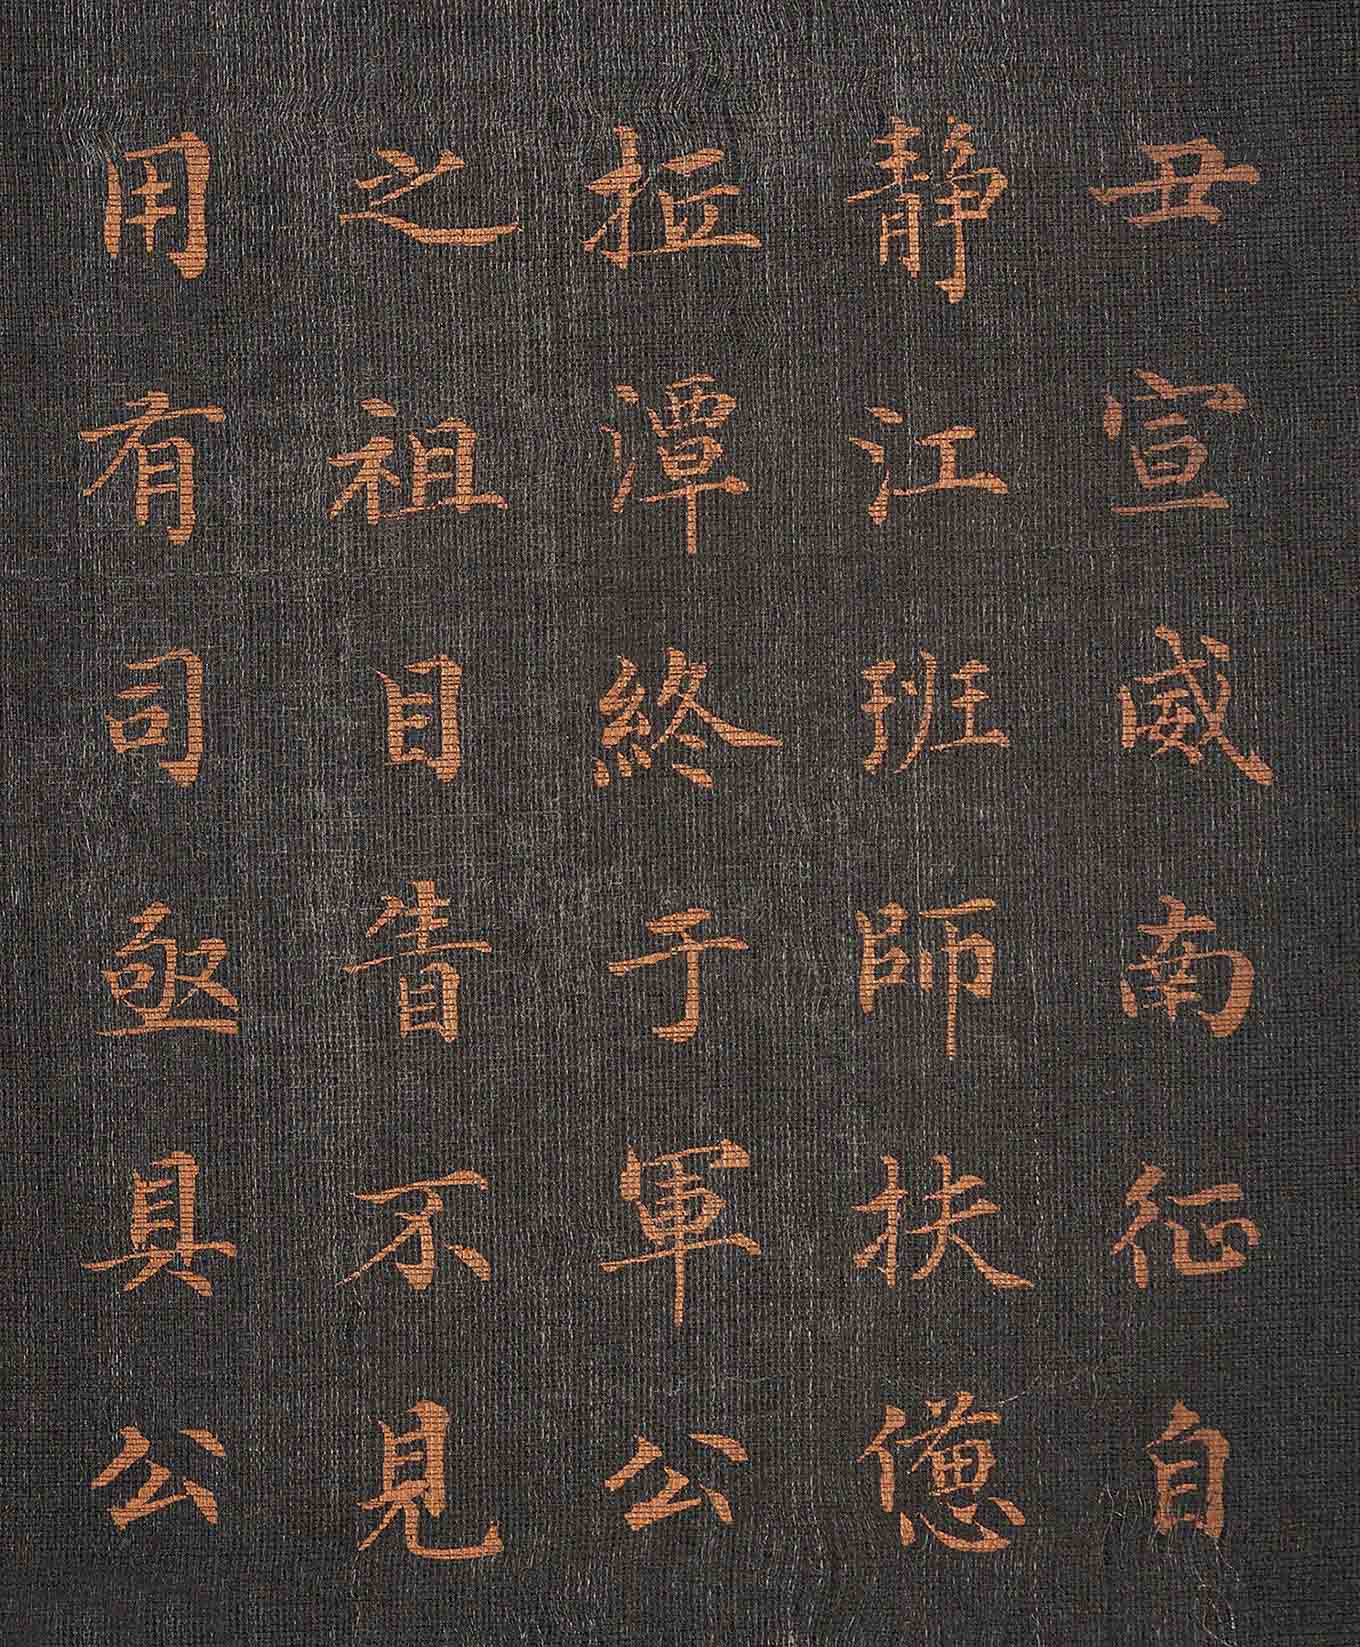 丑宣威南征自
靜江班師扶憊
潭終于軍公
之祖目眚不見
用有司亟具公